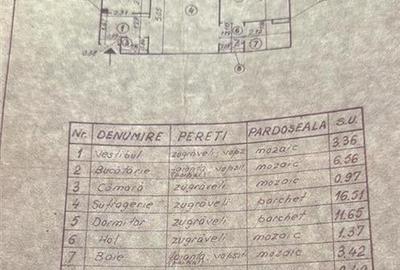 4
5.05
1
6
7
8
Nr. DENUMIRE PERETI PARDOSEALA S.U.
1 Vestibul zugrăveli, vops. mozaic 3.36
2 Bucătărie faianță, vopsit mozaic 6.56
3 Cămară zugrăveli mozaic 0.97
4 Sufragerie zugrăveli parchet 16.51
5 Dormitor zugrăveli parchet 11.65
6 Hol zugrăveli mozaic 1.37
7 Baie faianță, vopsit mozaic 3.42